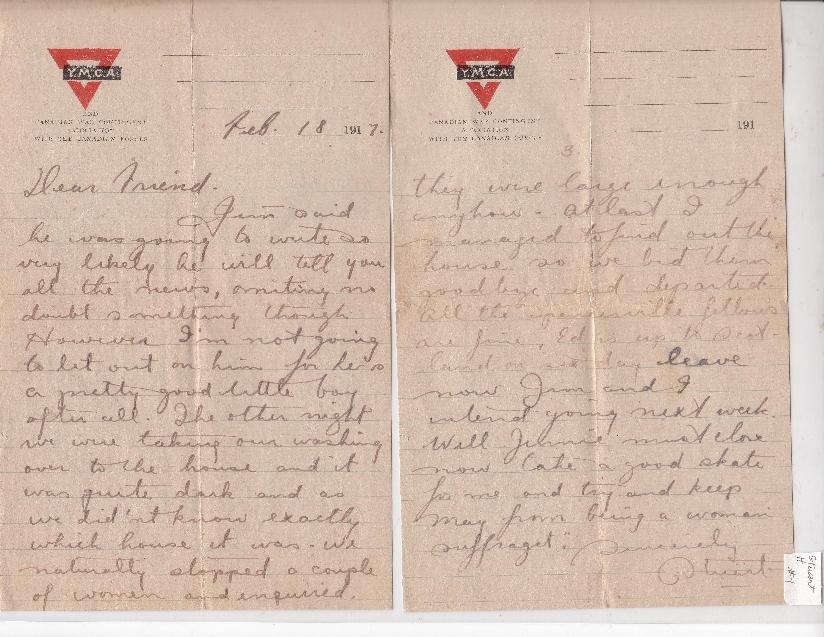 Y.M.C.A.
AND
CANADIAN WAR CONTINGENT
ASSOCIATION
WITH THE CANADIAN FORCES
Feb. 18 1917.
Dear Friend.
Jim said
he was going to write so
very likely he will tell you
all the news, omiting no
doubt something though
However I'm not going
to let out on him for he's
a pretty good little boy
after all. The other night
we were taking our washing
over to the house and it
was quite dark and as
we did'nt know exactly
which house it was - we
naturally stopped a couple
of women and enquired.
Y.M.C.A.
AND
CANADIAN WAR CONTINGENT
ASSOCIATION
WITH THE CANADIAN FORCES
191
3.
they were large enough
anyhow - at last I
managed to find out the
house so we bid them
goodbye and departed.
All the fellows
are fine, Ed is up to Scot-
land on six day leave
now Jim and I
intend going next week.
Well Jennie must close
now "take" a good skate
for me and try and keep
May from being a woman
suffraget". Sincerely
Stuart
Stuart
H
#1